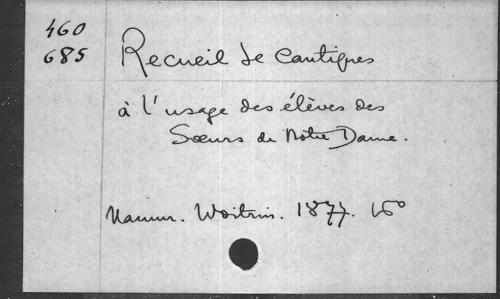 460
685
Recueil de Cantiques
à l'usage des élèves des
Sœurs de Notre Dame.
Namur. Woitrin. 1877. 16°